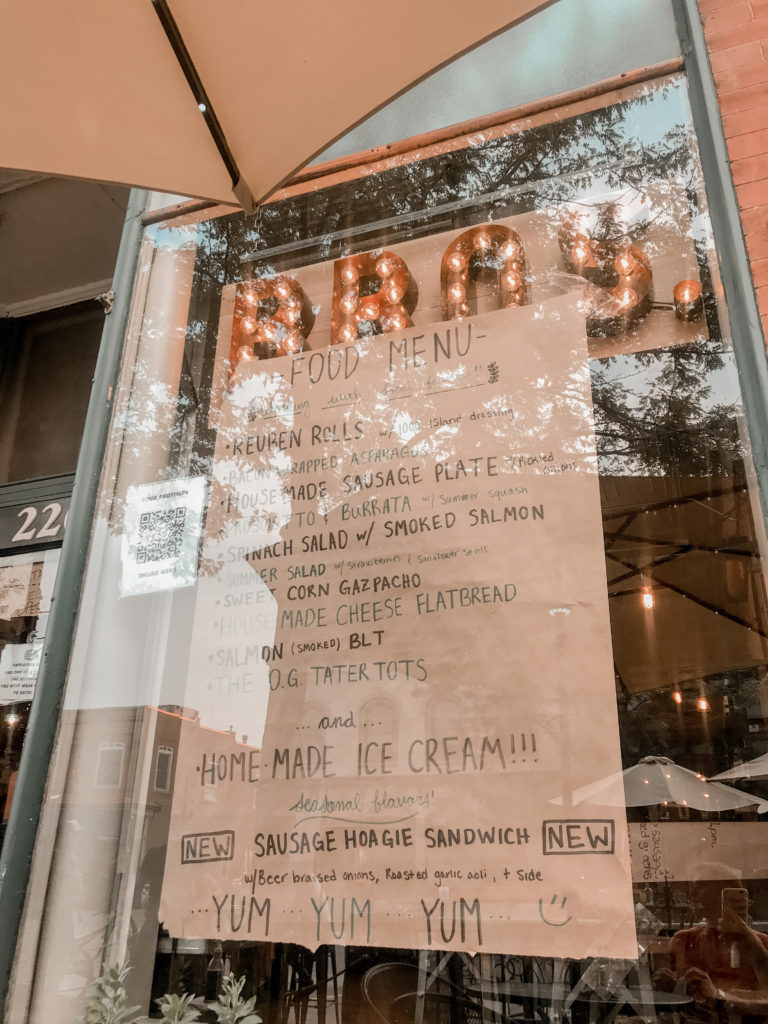 BROS.
-FOOD MENU-
• REUBEN ROLLS w/ 1000 island dressing
• BACON WRAPPED ASPARAGUS
• HOUSEMADE SAUSAGE PLATE w/ Pickled onions
& BURRATA w/ Summer squash
• SPINACH SALAD w/ SMOKED SALMON
• SUMMER SALAD w/ strawberries & sunflower seeds
• SWEET CORN GAZPACHO
• HOUSEMADE CHEESE FLATBREAD
• SALMON (SMOKED) BLT
• THE O.G. TATER TOTS
... and ...
• HOME-MADE ICE CREAM!!!
seasonal flavors!
NEW SAUSAGE HOAGIE SANDWICH NEW
w/Beer braised onions, Roasted garlic aoli, + Side
... YUM ... YUM ... YUM ...
FOUR BROTHERS
ONLINE MENU